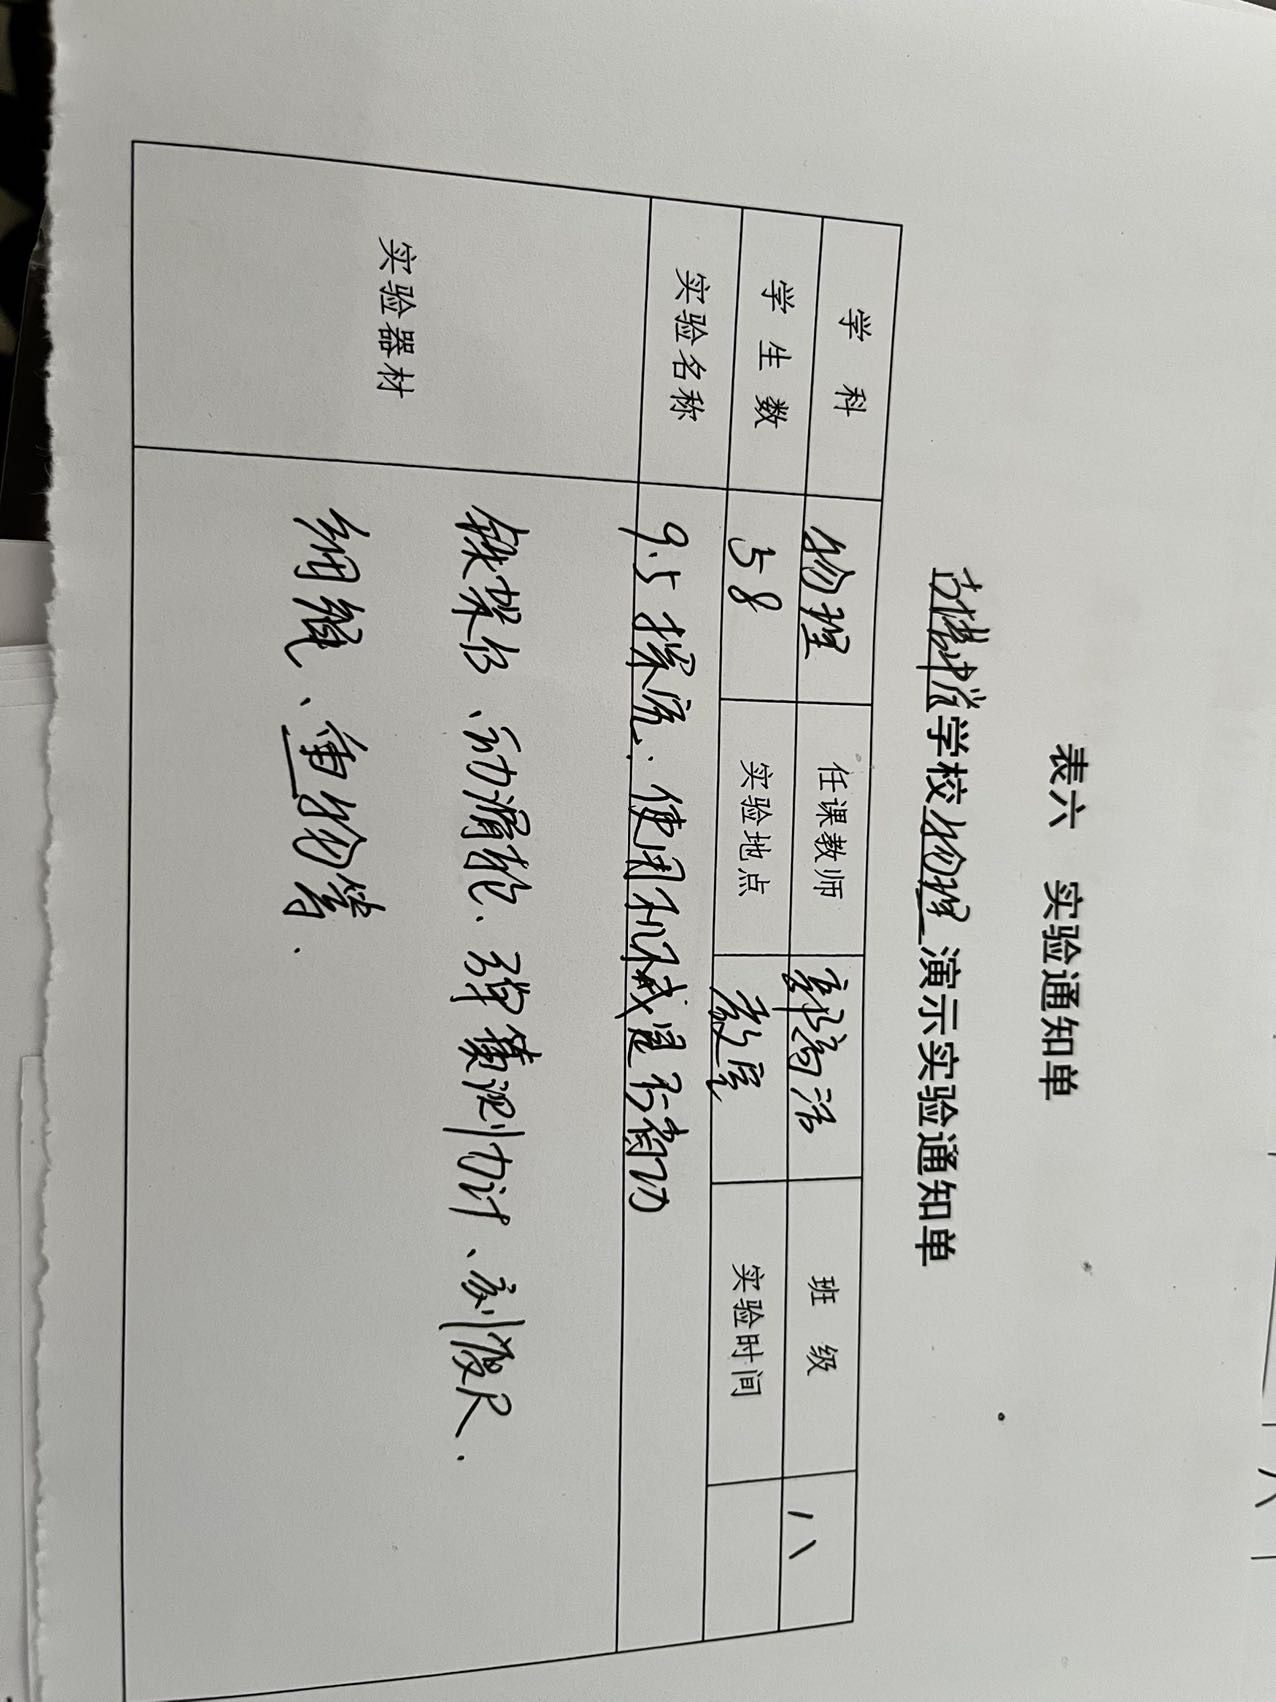 表六 实验通知单
学校物理演示实验通知单
学科 物理 任课教师 班级 八
学生数 58 实验地点 教室 实验时间
实验名称 9.5探究:使用机械是否省功
实验器材 铁架台、动滑轮、弹簧测力计、刻度尺.
细绳、重物等.